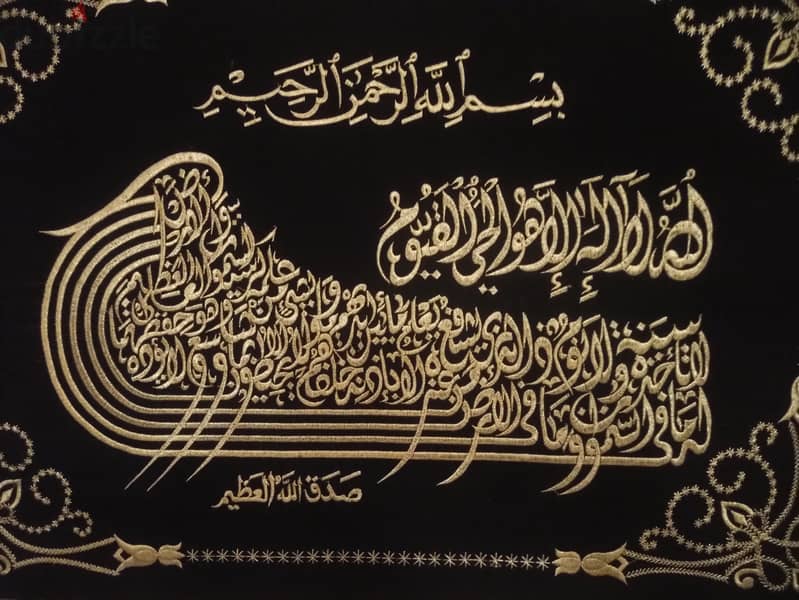 بِسْمِ ٱللَّهِ ٱلرَّحْمَٰنِ ٱلرَّحِيمِ
اللَّهُ لَا إِلَٰهَ إِلَّا هُوَ الْحَيُّ الْقَيُّومُ
لا تأخذه سنة ولا نوم له ما في السموات وما في الأرض من ذا الذي يشفع عنده إلا بإذنه يعلم ما بين أيديهم وما خلفهم ولا يحيطون بشيء من علمه إلا بما شاء وسع كرسيه السموات والأرض ولا يؤده حفظهما وهو العلي العظيم
صَدَقَ اللَّهُ العَظِيم